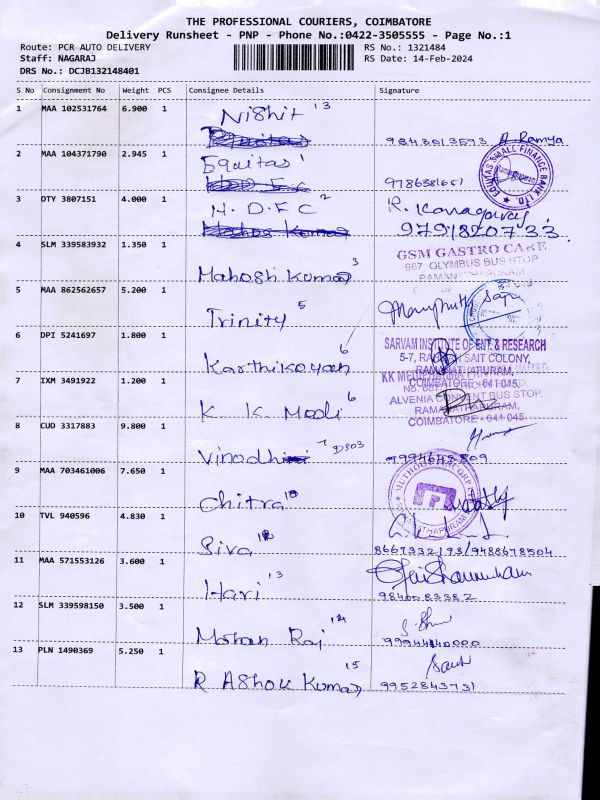 THE PROFESSIONAL COURIERS, COIMBATORE
Delivery Runsheet - PNP - Phone No.:0422-3505555 - Page No.:1
Route: PCR AUTO DELIVERY RS No.: 1321484
Staff: NAGARAJ RS Date: 14-Feb-2024
DRS No.: DCJB132148401
S No Consignment No Weight PCS Consignee Details Signature
1 MAA 102531764 6.900 1 Nishit 13
9843013593 A. Ramya
2 MAA 104371790 2.945 1 Equitas 1
EQUITAS SMALL FINANCE BANK LTD.
3 DTY 3807151 4.000 1 H. D. F C 2
4 SLM 339583932 1.350 1 Mahesh Kumar 3
GSM GASTRO CARE
967 OLYMBUS BUS STOP
RAMANATHAPURAM
5 MAA 862562657 5.200 1 Trinity 5
6 DPI 5241697 1.800 1 Karthikeyan 6
SARVAM INSTITUTE OF ENT. & RESEARCH
5-7, SAIT COLONY,
RAMANATHAPURAM,
COIMBATORE - 641 045.
7 IXM 3491922 1.200 1 K. K. Medi 6
ALVENIA CONVENT BUS STOP.
RAMANATHAPURAM,
COIMBATORE - 641 045.
8 CUD 3317883 9.800 1 Vinodhini 7
9994643809
9 MAA 703461006 7.650 1 Chitra 10
MUTHOOT FINCORP
10 TVL 940596 4.830 1 Siva 12
8667332193/9488678504
11 MAA 571553126 3.600 1 Hari 13
12 SLM 339598150 3.500 1 Mohan Raj 14
13 PLN 1490369 5.250 1 R Ashok Kumar 15
9952843731